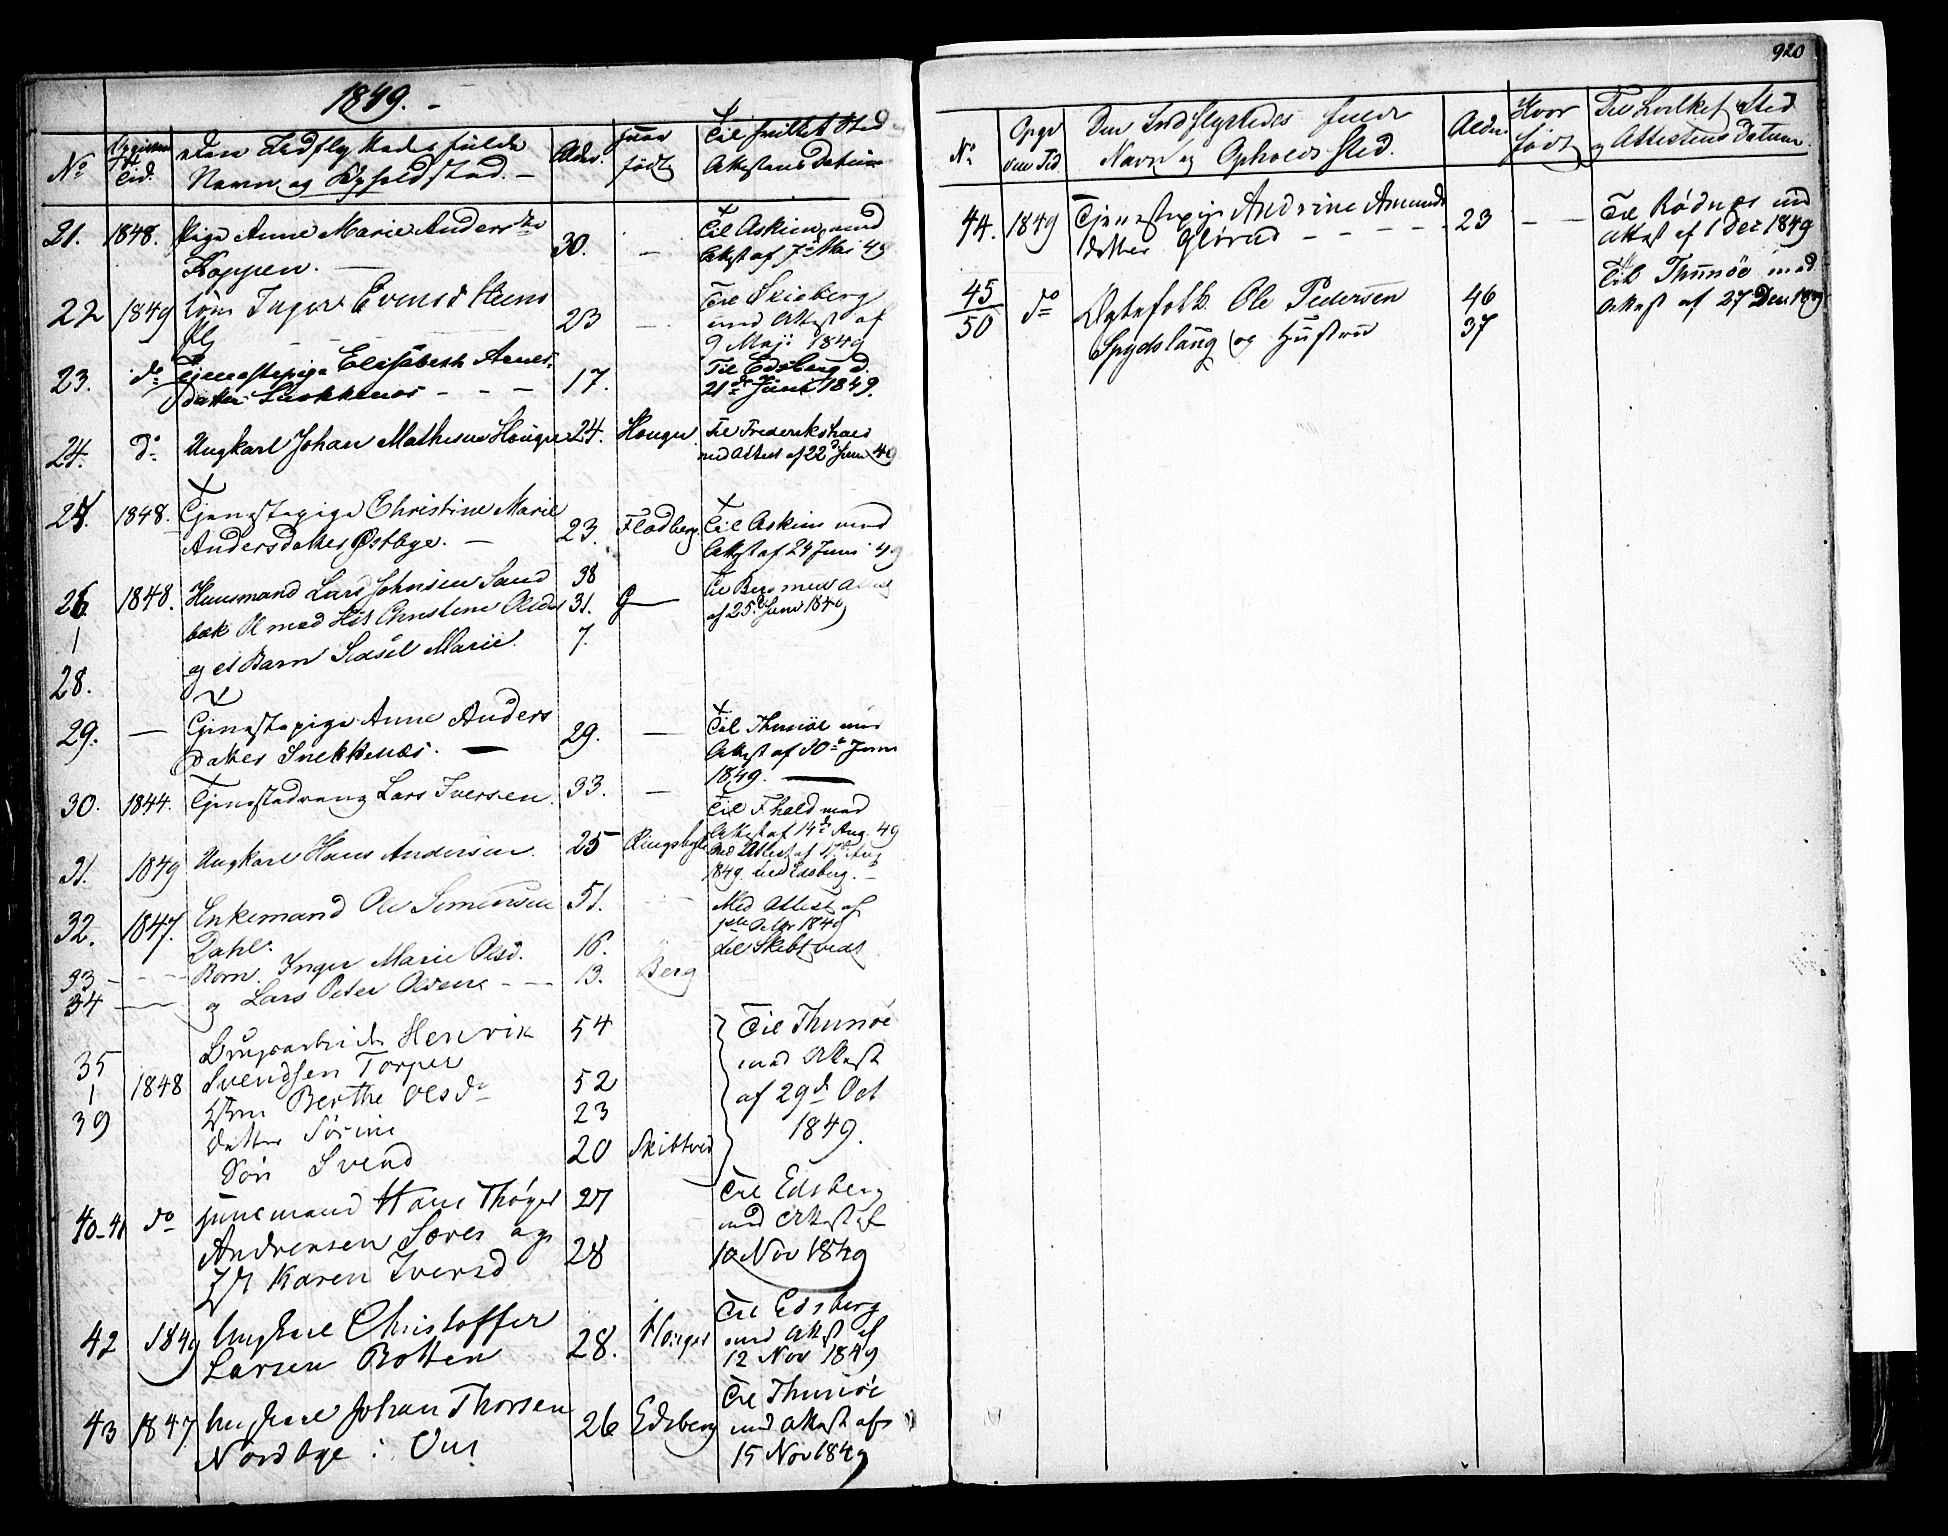 1849. -
No
Tid.
Den Udflyttedes fulde
Navn og Opholdssted. -
Alder.
Hvor
født
Til hvilket Sted
Attestens Datum
21. 1848. Pige Anne Marie Andersdr 30. — Til Askim med
Koppen. — Attest af 7de Mai 49
22 1849 Inger Evensd 23 — Til Skieberg
med Attest af
9 Maji 1849
23. do Tjenestepige Elisabeth Arnes- 17. Til Edsberg d.
datter Snekkenes - - - 21de Juni 1849.
24. do Ungkarl Johan Mathesen Hauger 24. Hauger Til Frederikshald
med Attest af 22 d Juni 49
25. 1848. Tjenestepige Christine Marie 23. Fladberg Til Askim med
Andersdatter Østbye. — Attest af 24 Juni 49
26 1848. Huusmand Lars Johnsen Sand 38 Til Berg med Attest
bæk med Christine Olsdr 31. af 25d Juni 1849
28. og et Barn Sidsel Marie. 7.
29. — Tjenestepige Anne Anders 29. — Til Thunøe med
datter Snekkenæs. — Attest af 30te Juni
1849. —
30. 1844. Tjenestedreng Lars Iversen. 33. — Til F.hald med
Attest af 14de Aug. 49
31. 1849 Ungkarl Hans Andersen. 25 Med Attest af 17de Aug
1849 til Edsberg. -
32. 1847. Enkemand Ole Simensen 51. Med Attest af
Dahl. 1849
33 - - - Børn. Inger Marie Olsd. 16. til Skibtvedt
34 — og Lars Peter Olsen - - 13. Berg
35 Brugsarbeider Henrik 54 Til Thunøe
1848 Svendsen Torper med Attest
Berthe Olsdr 52 af 29d Oct
39 datter Sørine 23 1849.
Søn Svend 20 Skibtved
40-41 do Hans Thøger 27 Til Edsberg
Andreasen og med Attest af
Karen Iversd 28 10 Nov 1849
42 1849 Ungkarl Christoffer 28. Hauger Til Edsberg
Larsen Rotten med Attest af
12 Nov 1849
43 1847 Ungkarl Johan Thorsen 26 Edsberg Til Thunøe
Nordbye : med Attest af
15 Nov 1849
920
No
Opgi
ven Tid
Den Indflyttedes fulde
Navn og Opholds Sted.
Alder
Hvor
født
Til hvilket Sted
og Attestens Datum.
44. 1849 Tjenestepige Andrine Amunds 23 — — Til Rødnæs med
datter Glørud - - - - Attest af 1 Dec 1849
45
50 do Ægtefolk Ole Pedersen 46 Til Thunøe med
Spydslaug og Hustrue 37 Attest af 27 Dec 1849